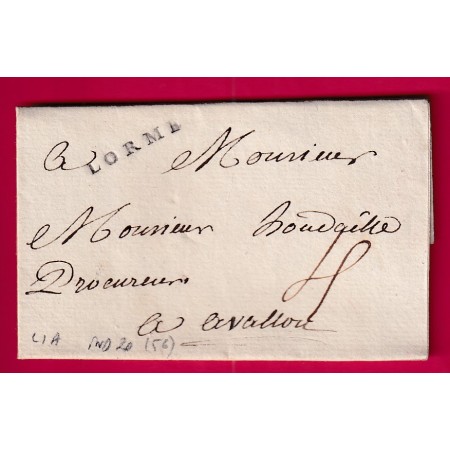 LORME
a Monsieur
Monsieur houdaille
Procureur
a avallon
L1A IND 20 (56)